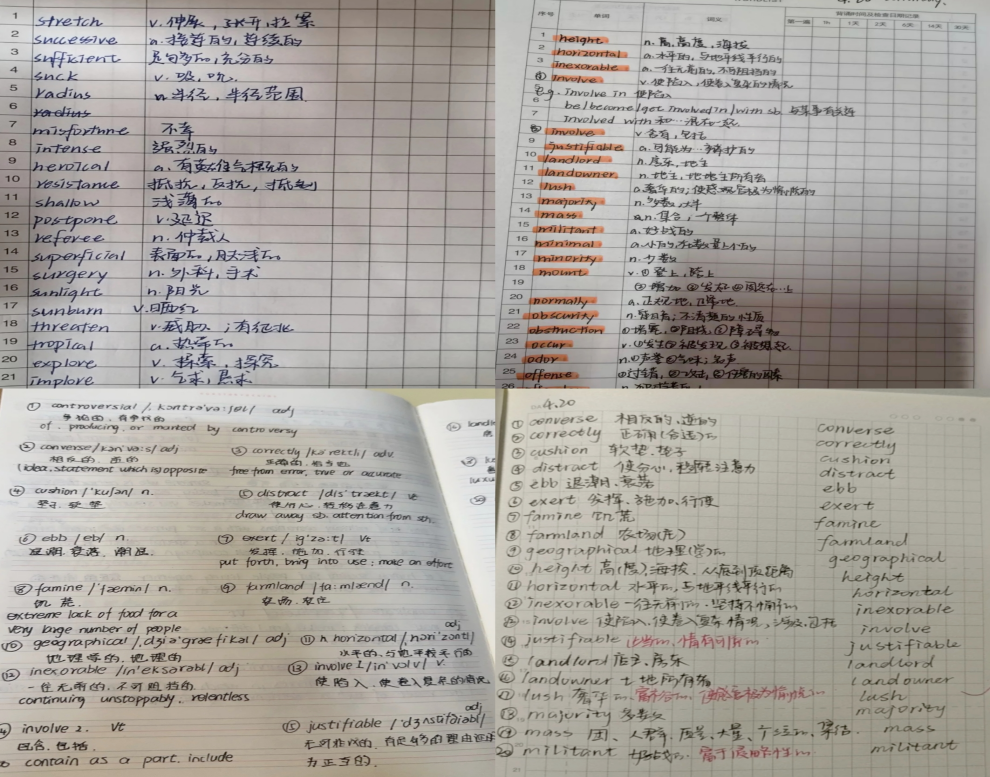 1 stretch v. 伸展, 张开, 拉紧
2 successive a. 接着的, 连续的
3 sufficient 足够多的, 充分的
4 suck v. 吸, 吮
5 radius n. 半径, 半径范围
6 radius
7 misfortune 不幸
8 intense 强烈的
9 heroical a. 有英雄气概的
10 resistance 抵抗, 反抗, 抵制
11 shallow 浅薄的
12 postpone v. 延迟
13 referee n. 仲裁人
14 superficial 表面的, 肤浅的
15 surgery n. 外科, 手术
16 sunlight n. 阳光
17 sunburn v. 晒
18 threaten v. 威胁; 有征兆
19 tropical a. 热带的
20 explore v. 探索, 探究
21 implore v. 乞求, 恳求
序号 单词 词义 背诵时间及检查日期记录
第一遍 1h 1天 2天 6天 14天 30天
1 height n. 高, 高度, 海拔
2 horizontal a. 水平的, 与地平线平行的
3 inexorable a. 一往无前的, 不可阻挡的
4 involve v. 使陷入, 使卷入复杂的情况
e.g. involve in 使陷入
6 be/become/get involved in/with sb. 与某事有牵连
7 involved with 和…混在一起
involve v. 含有, 包括
9 justifiable a. 可能为…辩护的
10 landlord n. 房东, 地主
11 landowner n. 地主, 地
12 lush a.
13 majority n. 多数, 大半
14 mass n. 集合, 一个整体
15 militant a. 好战的
16 minimal a. 小的,
17 minority n. 少数
18 mount v. ①登上, 踏上
19
20 normally a. 正规地, 正常地
21 obscurity n. 不清楚的性质
22 obstruction ①堵塞, ②阻挠, ③障碍物
23 occur v. ①发生②被发现
24 odor n. 名声
25 offense
26
① controversial / adj
争论的, 有争议的
of, producing, or marked by controversy
② converse adj ③ correctly adv.
相反的, 逆的 正确的, 恰当地
(idea, statement which is) opposite free from error, true or accurate
④ cushion n. ⑤ distract vt
垫子, 软垫 使分心, 转移注意力
draw away sb. attention from sth.
⑥ ebb /eb/ n. ⑦ exert vt
退潮, 衰落, 潮退 发挥, 施加, 行使
put forth, bring into use; make an effort
⑧ famine /'fæmin/ n. ⑨ farmland n.
饥荒 农场, 农庄
extreme lack of food for a
very large number of people
⑩ geographical adj ⑪ horizontal adj
地理学的, 地理的 水平的, 与地平线平行的
⑫ inexorable adj ⑬ involve 1. v.
一往无前的, 不可阻挡的 使陷入, 使卷入复杂的情况
continuing unstoppably, relentless
involve 2. vt ⑮ justifiable adj
包含, 包括
contain as a part, include 为正当的
4.20
① converse 相反的, 逆的 converse
② correctly 正确(合适)的 correctly
③ cushion 软垫, 垫子 cushion
④ distract 使分心, 转移注意力 distract
⑤ ebb 退潮, 衰落 ebb
⑥ exert 发挥, 施加, 行使 exert
⑦ famine 饥荒 famine
⑧ farmland 农场(庄) farmland
⑨ geographical 地理(学)的 geographical
⑩ height 高(度), 海拔, 从底到顶距离 height
⑪ horizontal 水平的, 与地平线平行的 horizontal
⑫ inexorable 一往无前的, 坚持不懈的 inexorable
involve 使陷入, 使卷入复杂情况, 涉及, 包括 involve
justifiable 正当的, 情有可原的 justifiable
landlord 店主, 房东 landlord
landowner 土地所有者 landowner
lush 奢华的, 富裕的, lush
⑱ majority 多数 majority
mass 团, 人群, 大量, 集结 mass
⑳ militant 好战的, 富于侵略性的 militant